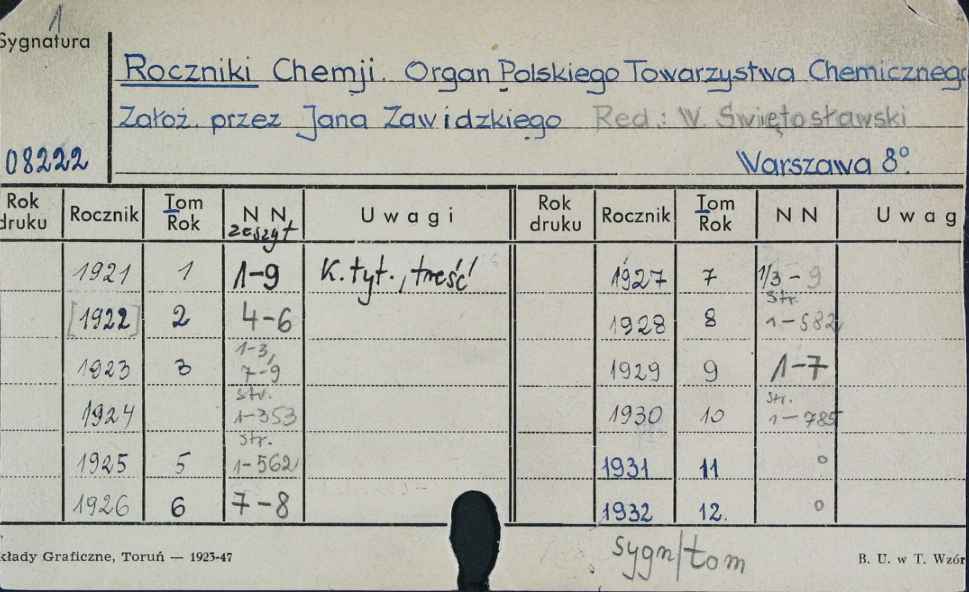 1
Sygnatura
Roczniki Chemji. Organ Polskiego Towarzystwa Chemicznego
Założ. przez Jana Zawidzkiego Red.: W. Świętosławski
08222 Warszawa 8º.
Rok druku Rocznik Tom Rok N N zeszyt U w a g i Rok druku Rocznik Tom Rok N N U w a g
1921 1 1-9 K. tyt., treść 1927 7 1/3 - 9
[1922] 2 4-6 1928 8 str. 1-582
1923 3 1-3, 7-9 1929 9 1-7
1924 str. 1-353 1930 10 str. 1-785
1925 5 str. 1-562 1931 11 o
1926 6 7-8 1932 12. o
sygn/tom
kłady Graficzne, Toruń — 1923-47 B. U. w T. Wzór